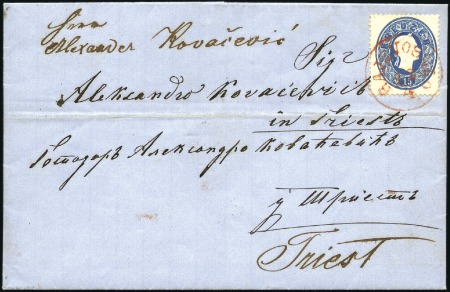 Herrn
Alexander Kovačević
Sigr
Aleksandro Kovačevich
in Triest
Господаръ Александро Ковачевићъ
у Трiестъ
Triest
15